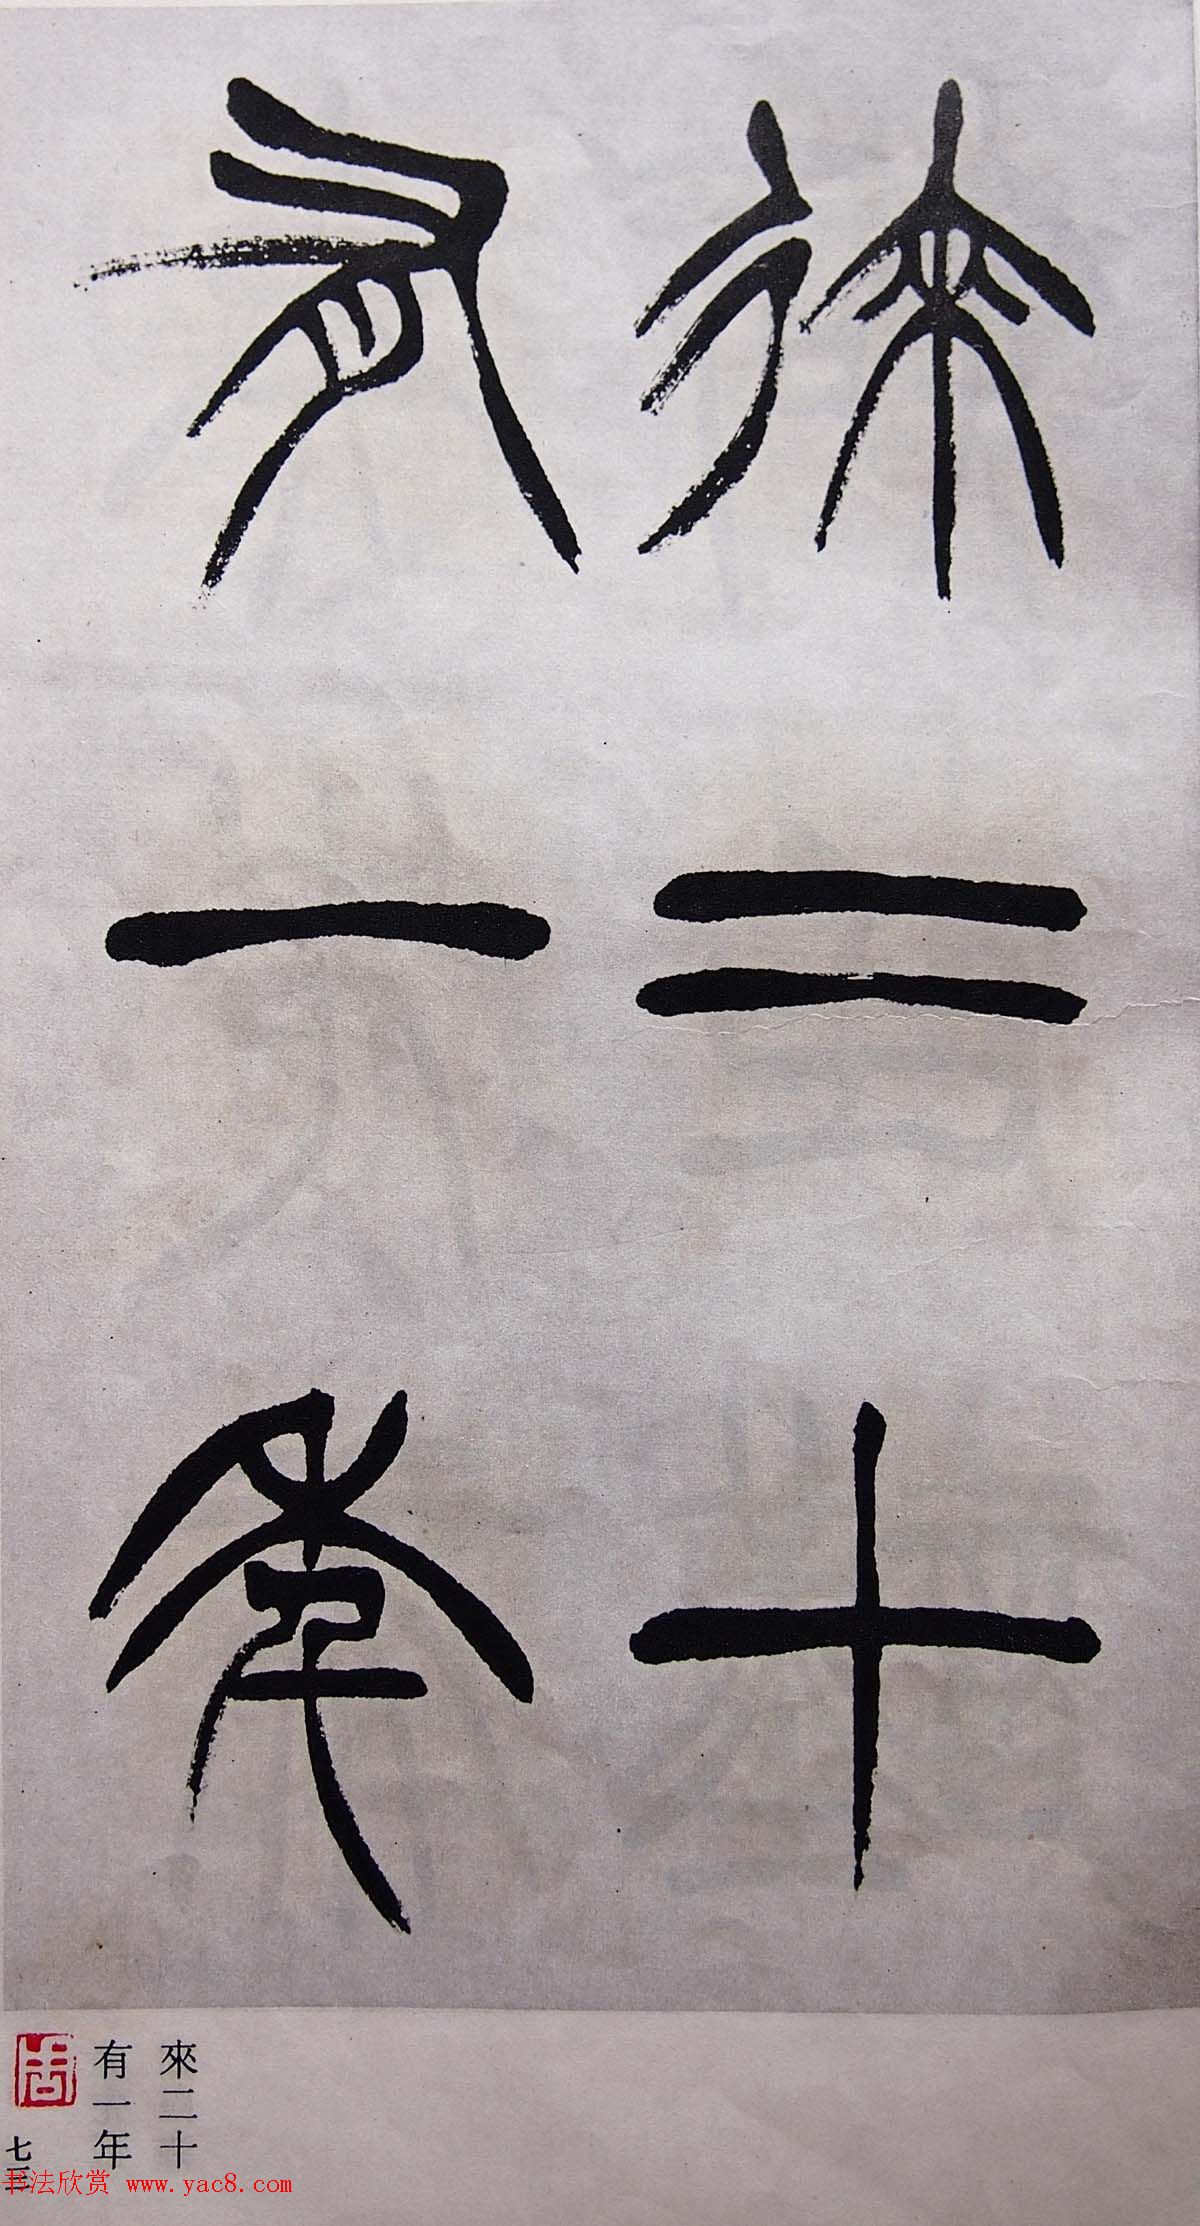 來二十
有一年
來二十
有一年
书法欣赏 www.yac8.com